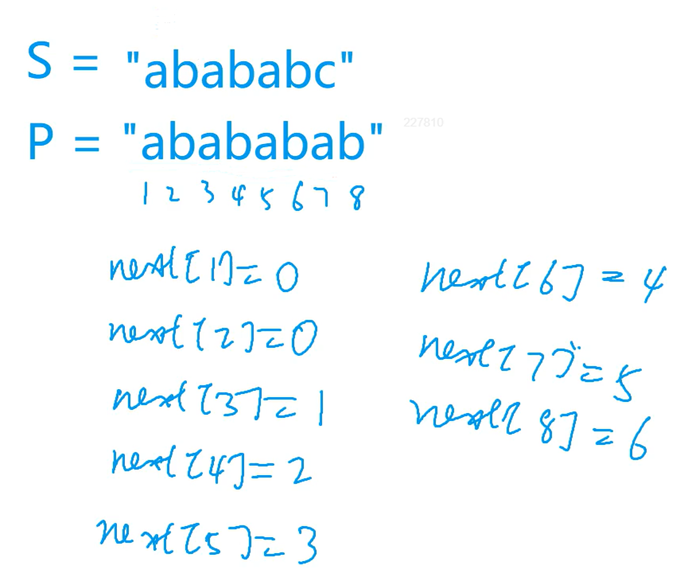 S = "abababc"
P = "abababab"
227810
1 2 3 4 5 6 7 8
next[1]=0
next[2]=0
next[3]=1
next[4]=2
next[5]=3
next[6]=4
next[7]=5
next[8]=6